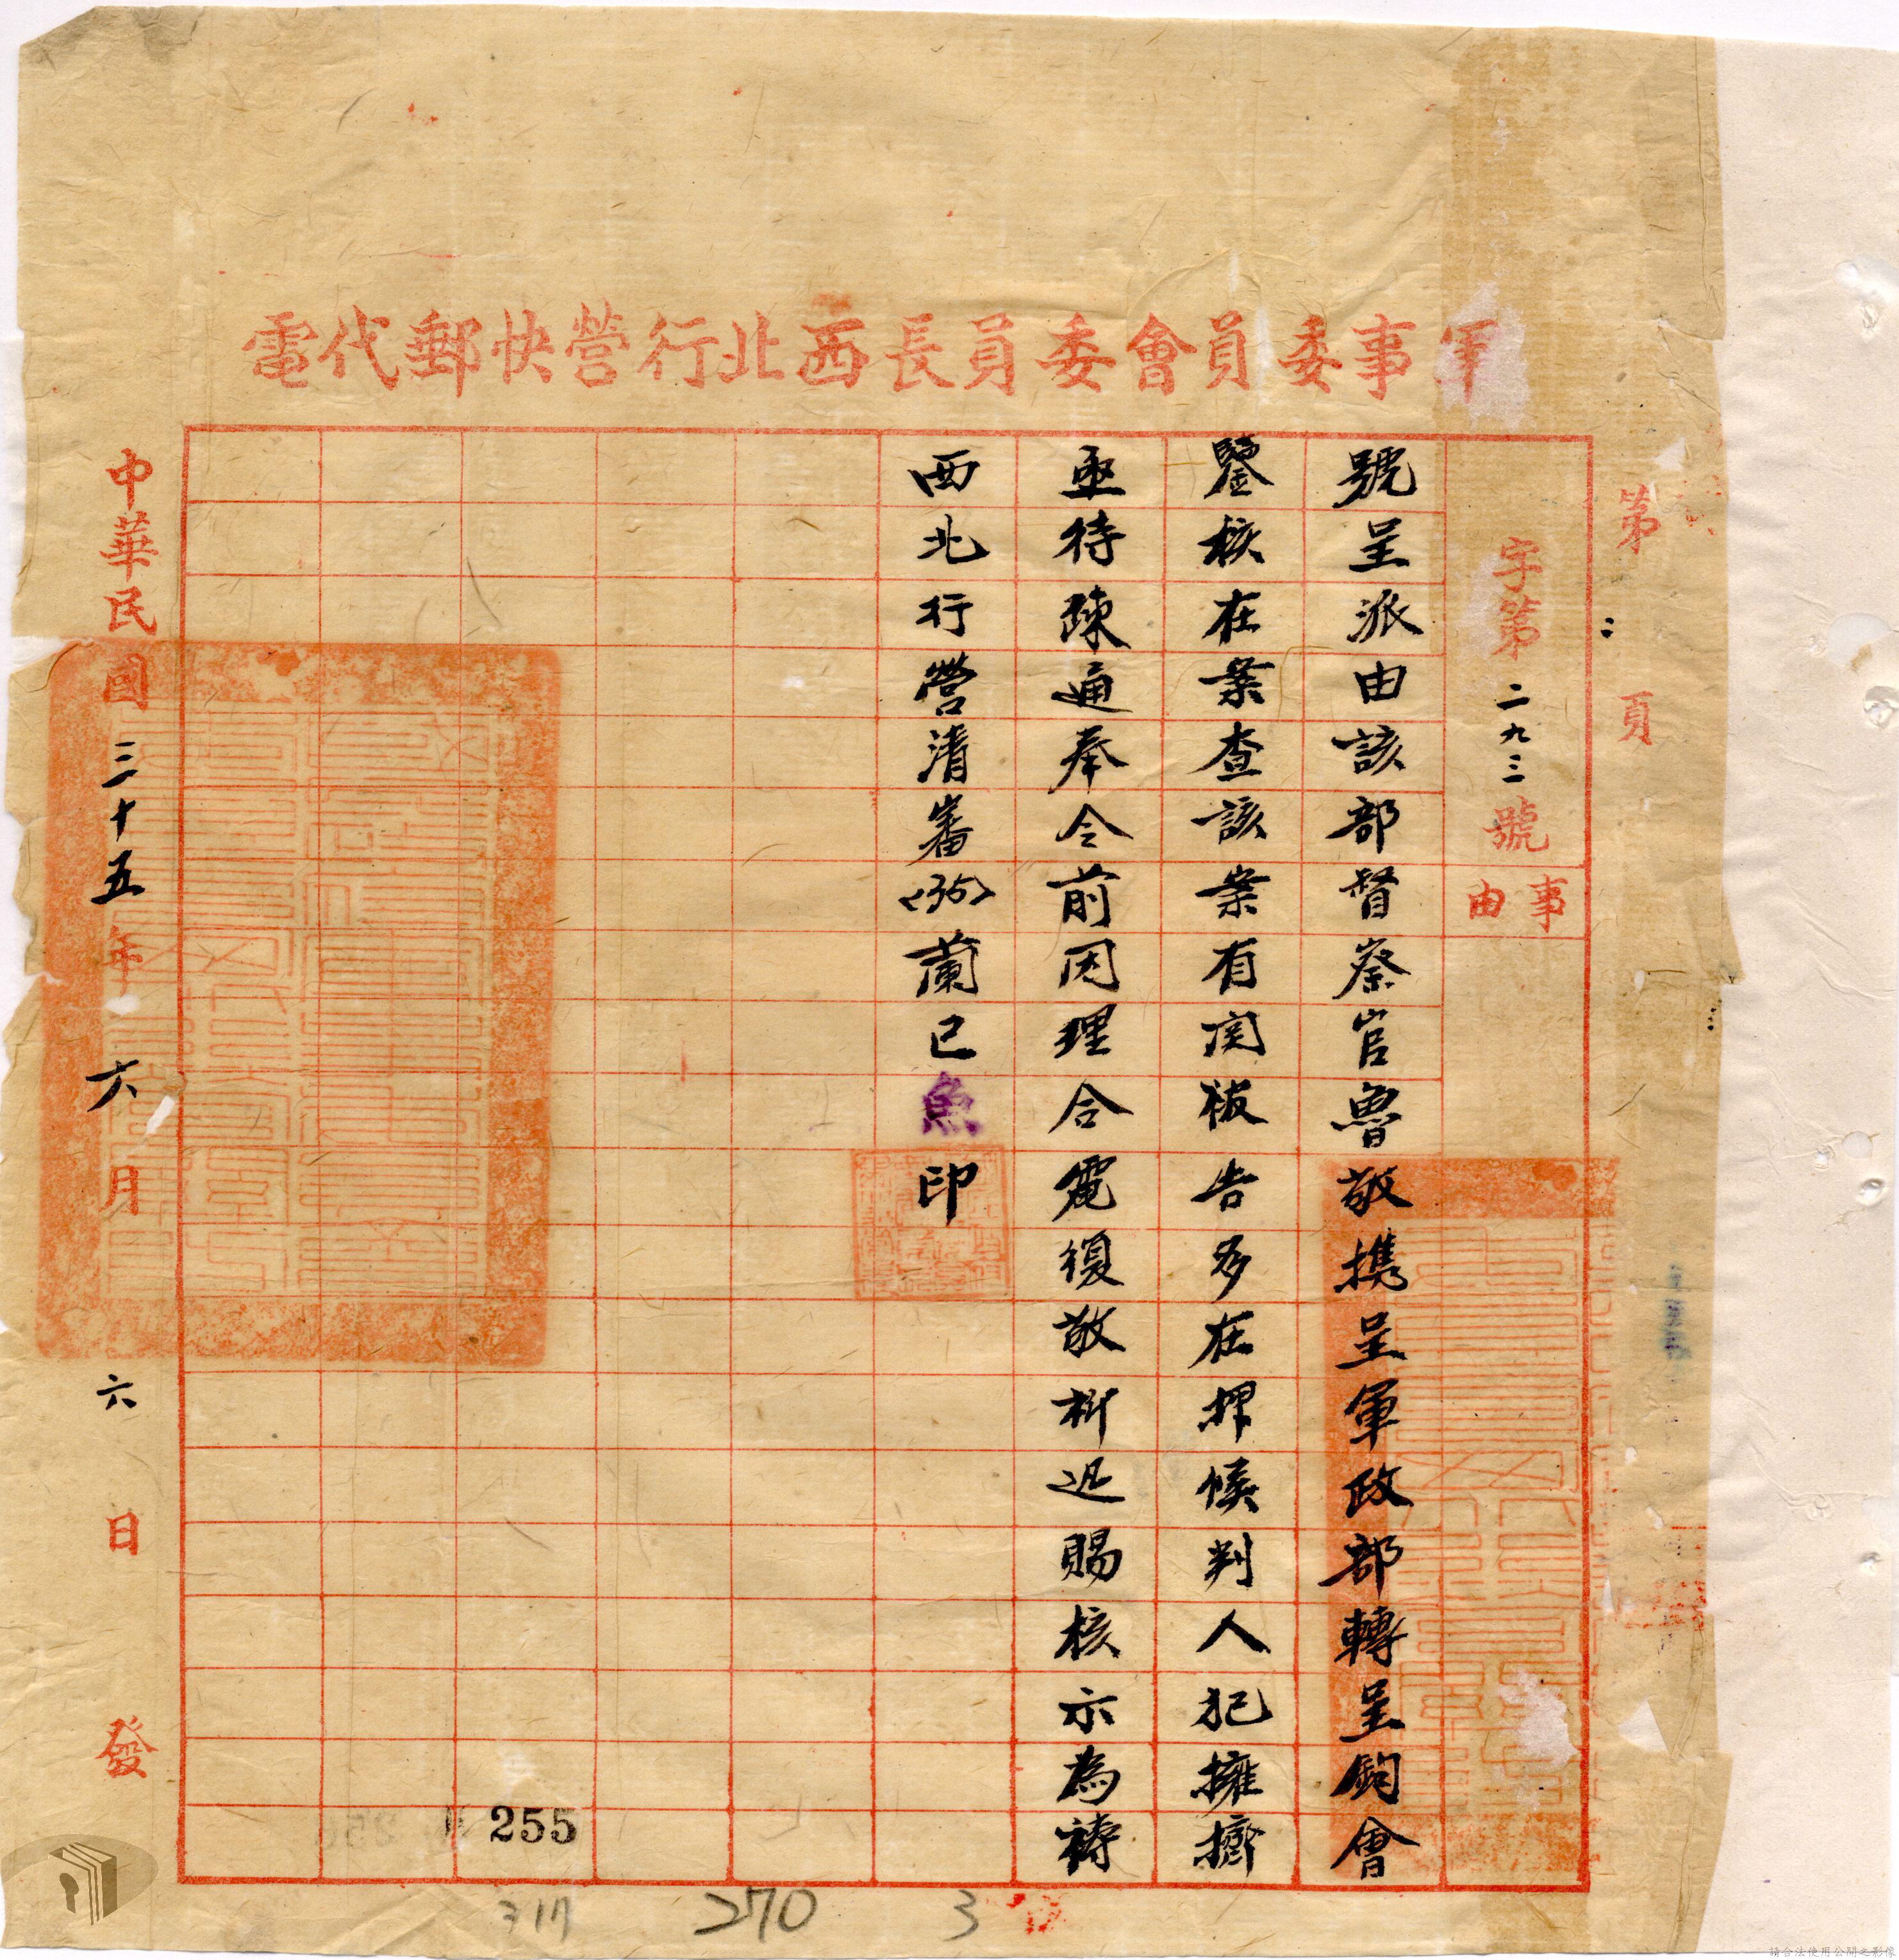 軍事委員會委員長西北行營快郵代電
第 : 頁
字第二九三號
事由
號呈派由該部督察官魯敬携呈軍政部轉呈鈞會
鑒核在案查該案有関被告多在押候判人犯擁擠
亟待疎通奉令前因理合電復敬祈迅賜核示為禱
西北行營清審<35>蘭巳魚印
中華民國三十五年六月六日發
255
317
270
3
請合法使用公開之影像